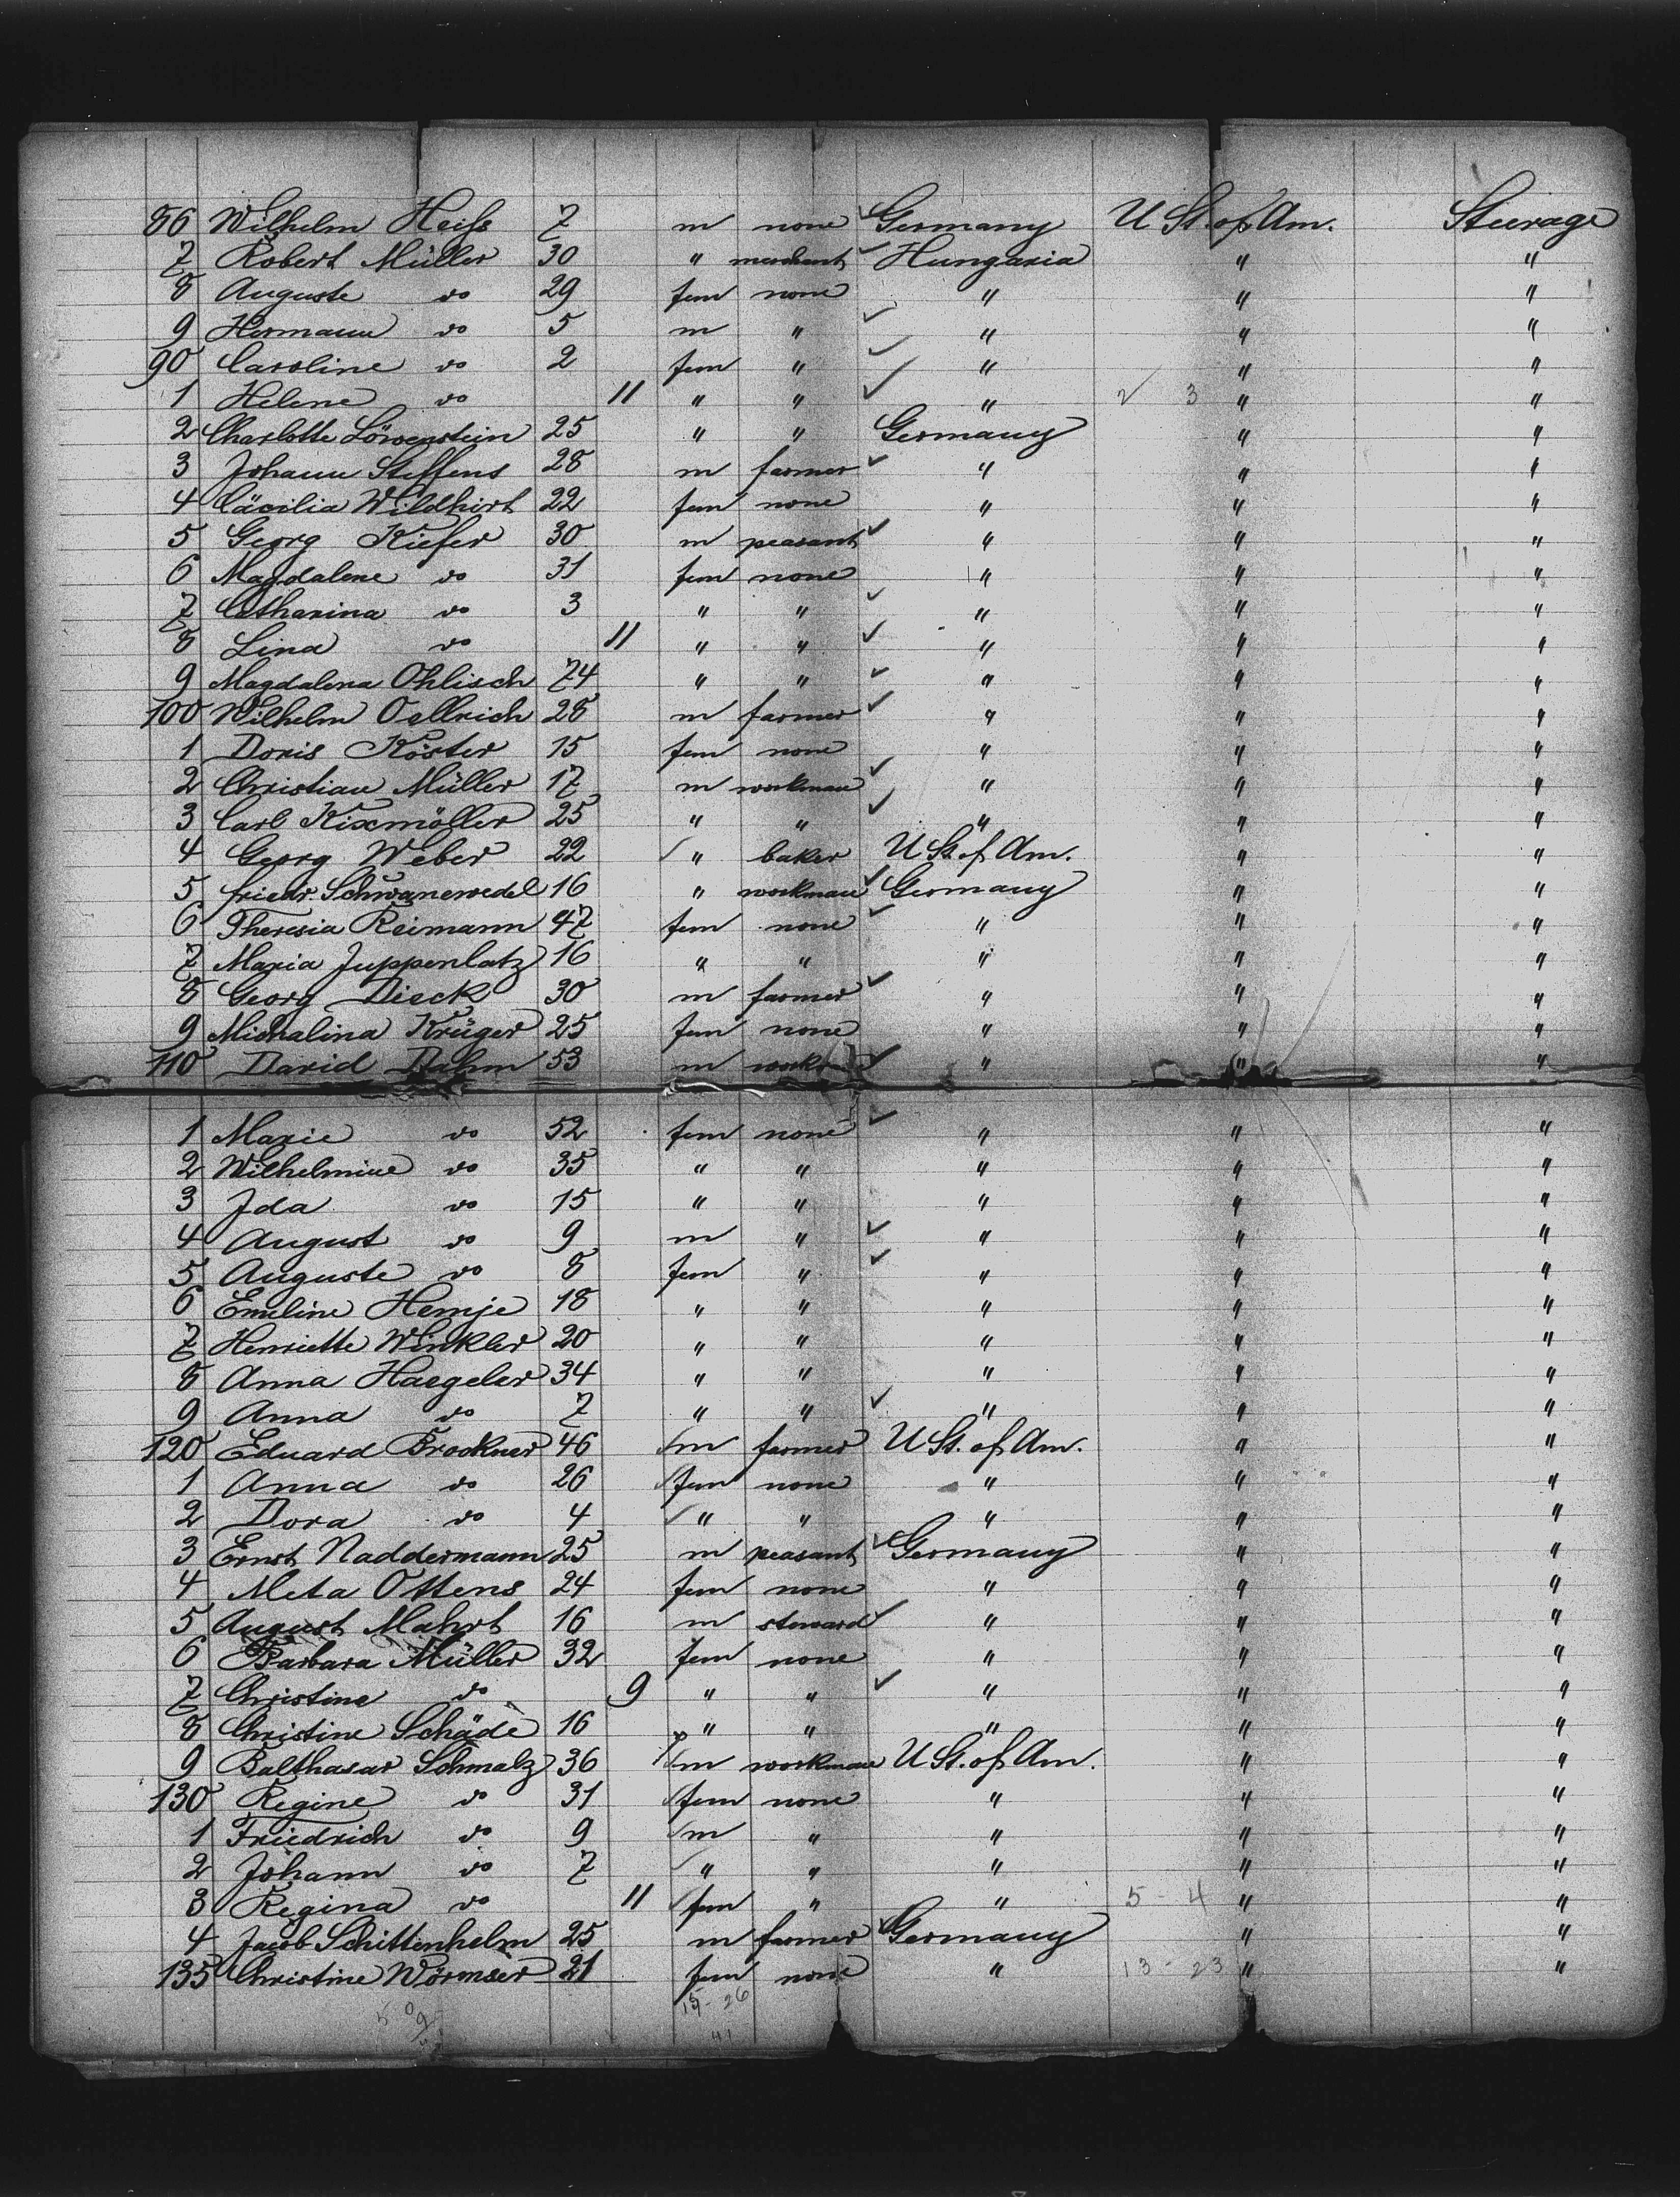 86 Wilhelm Heiſs 7 m none Germany U St. of Am. Steerage
7 Robert Müller 30 " merchant Hungaria " "
8 Auguste do 29 fem none " " "
9 Hermann do 5 m " " " "
90 Caroline do 2 fem " " " "
1 Helene do 11 " " " 3 " "
2 Charlotte Löwenstein 25 " " Germany " "
3 Johann Steffens 28 m farmer " " "
4 Cäcilia Wildhirt 22 fem none " " "
5 Georg Kiefer 30 m peasant " " "
6 Magdalene do 31 fem none " " "
7 Catharina do 3 " " " " "
8 Lina do 11 " " " " "
9 Magdalena Ohlisch 74 " " " " "
100 Wilhelm Oellrich 28 m farmer " " "
1 Doris Köster 15 fem none " " "
2 Christian Müller 17 m workman " " "
3 Carl Kixmöller 25 " " " " "
4 Georg Weber 22 " baker U St. of Am. " "
5 Friedr. Schwanewedel 16 " workman Germany " "
6 Theresia Reimann 47 fem none " " "
7 Maria Juppenlatz 16 " " " " "
8 Georg Dieck 30 m farmer " " "
9 Michalina Krüger 25 fem none " " "
110 David Dahm 53 m " " "
1 Marie do 52 fem none " " "
2 Wilhelmine do 35 " " " " "
3 Ida do 15 " " " " "
4 August do 9 m " " " "
5 Auguste do 8 fem " " " "
6 Emeline Hemje 18 " " " " "
7 Henriette Winkler 20 " " " " "
8 Anna Haegeler 34 " " " " "
9 Anna do 7 " " " " "
120 Eduard Brockner 46 m farmer U St. of Am. " "
1 Anna do 26 fem none " " "
2 Dora do 4 " " " " "
3 Ernst Naddermann 25 m peasant Germany " "
4 Meta Ottens 24 fem none " " "
5 August Mahrt 16 m steward " " "
6 Barbara Müller 32 fem none " " "
7 Christine do 9 " " " " "
8 Christine Schäde 16 " " " " "
9 Balthasar Schmalz 36 m workman U St. of Am. " "
130 Regine do 31 fem none " " "
1 Friedrich do 9 m " " " "
2 Johann do 7 " " " " "
3 Regina do 11 fem " " 5 - 4 " "
4 Jacob Schittenhelm 25 m farmer Germany " "
135 Christine Wörmser 21 fem none " 13 - 23 " "
15 - 26
41